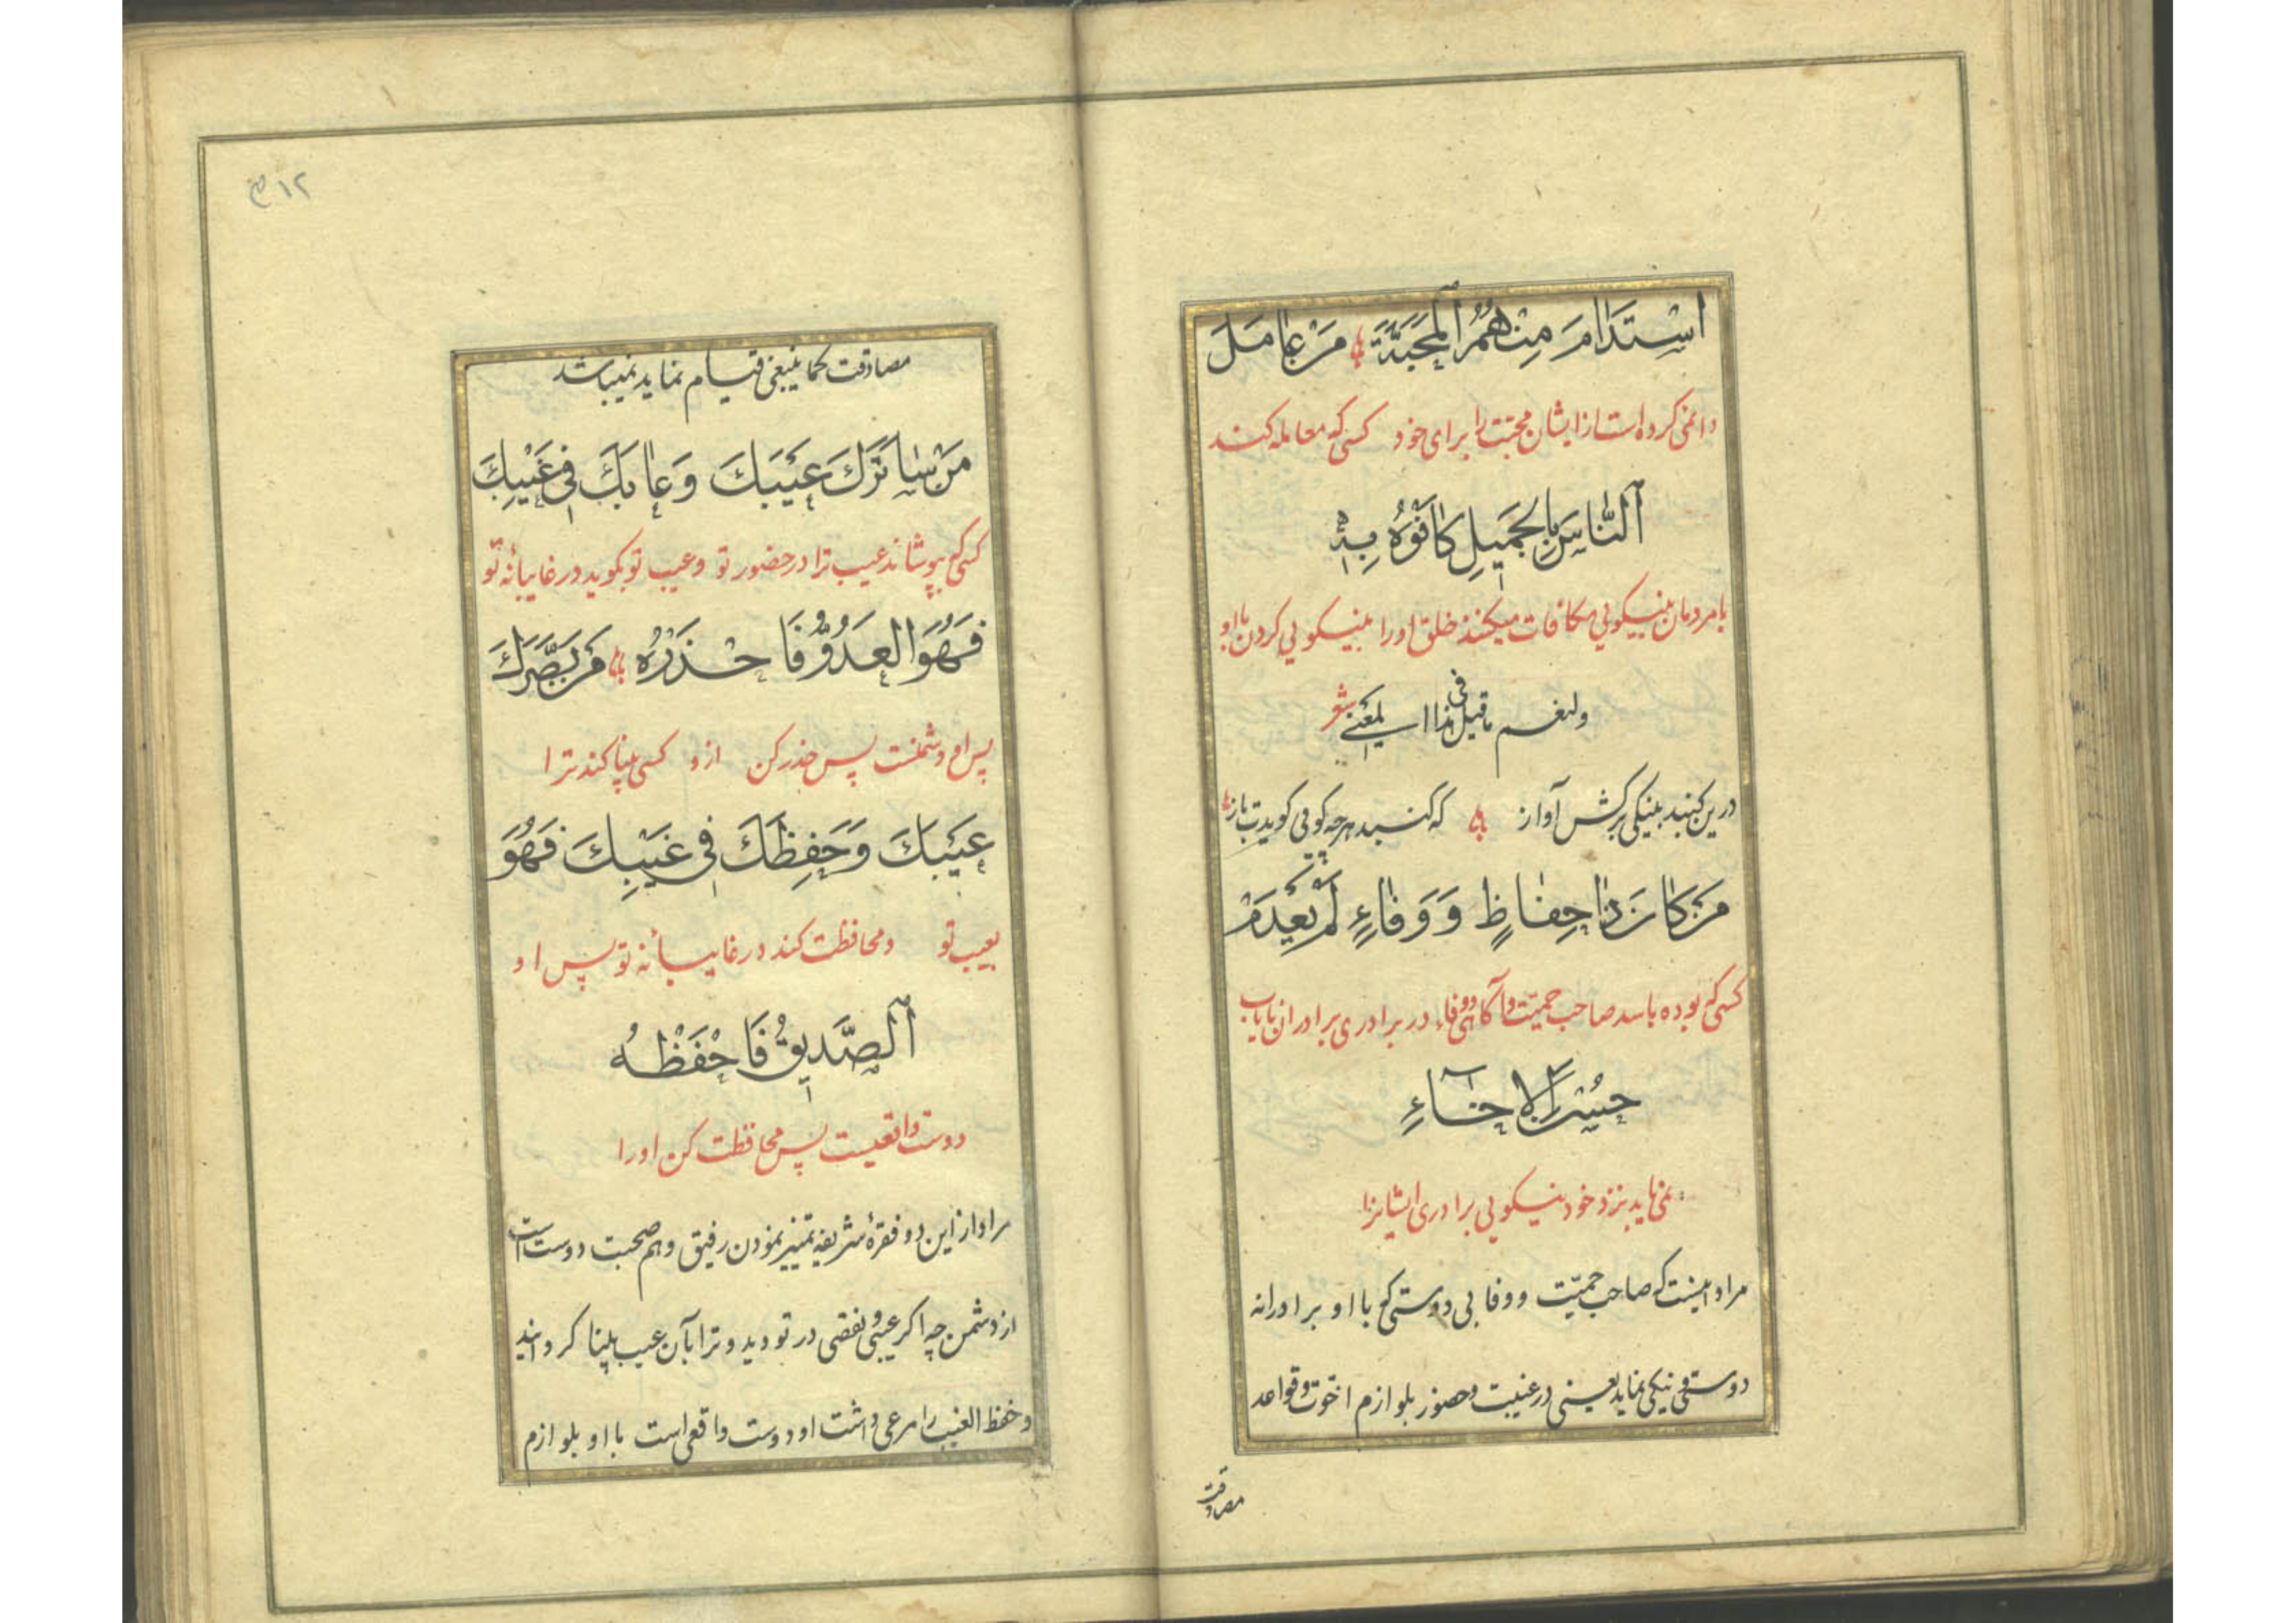 اسْتَدَامَ مِنْهُمُ الْمَحَبَّةَ مَنْ عَامَلَ
دائمی کرده است از ایشان محبت را برای خود کسی که معامله کند
اَلنَّاسَ بِالْجَمِيلِ كَافَوْهُ بِهِ
با مردمان بنیکویی مکافات میکنند خلق او را بنیکویی کردن با او
ولنعم ما قیل فی هذا المعنی شعر
درین کنبد بنیکی برکش آواز که کنبد هرچه کویی کویدت باز
مَنْ كَانَ ذَا حِفَاظٍ وَوَفَاءٍ لَمْ يَعْدَمْ
کسی که بوده باسد صاحب حمیّت و آکاهی و وفاء در برادری برادران نایاب
حُسْنَ الْاِخَاءِ
نمی‌نماید بنزد خود نیکویی برادری ایشانرا
مراد اینست که صاحب حمیّت و وفا بی دوستی که با او برادرانه
دوستی و نیکی نماید یعنی در غیبت و حضور بلوازم اخوّت و قواعد
مصادقت
۱۲م
مصادقت کما ینبغی قیام نماید نمیباشد
مَنْ سَاتَرَكَ عَيْبَكَ وَعَابَكَ فِي غَيْبِكَ
کسی که بپوشاند عیب ترا در حضور تو و عیب تو بکوید در غایبانهٔ تو
فَهُوَ الْعَدُوُّ فَاحْذَرْهُ مَنْ بَصَّرَكَ
پس او دشمنست پس حذر کن ازو کسی بینا کند ترا
عَيْبَكَ وَحَفِظَكَ فِي غَيْبِكَ فَهُوَ
بعیب تو و محافظت کند در غایبانهٔ تو پس او
اَلصَّدِيقُ فَاحْفَظْهُ
دوست واقعیست پس محافظت کن او را
مراد از این دو فقرهٔ شریفه تمییز نمودن رفیق و هم صحبت دوست است
از دشمن چه اکر عیبی و نقصی در تو دید و ترا بآن عیب بینا کردانید
و حفظ الغیب را مرعی داشت او دوست واقعی است با او بلوازم